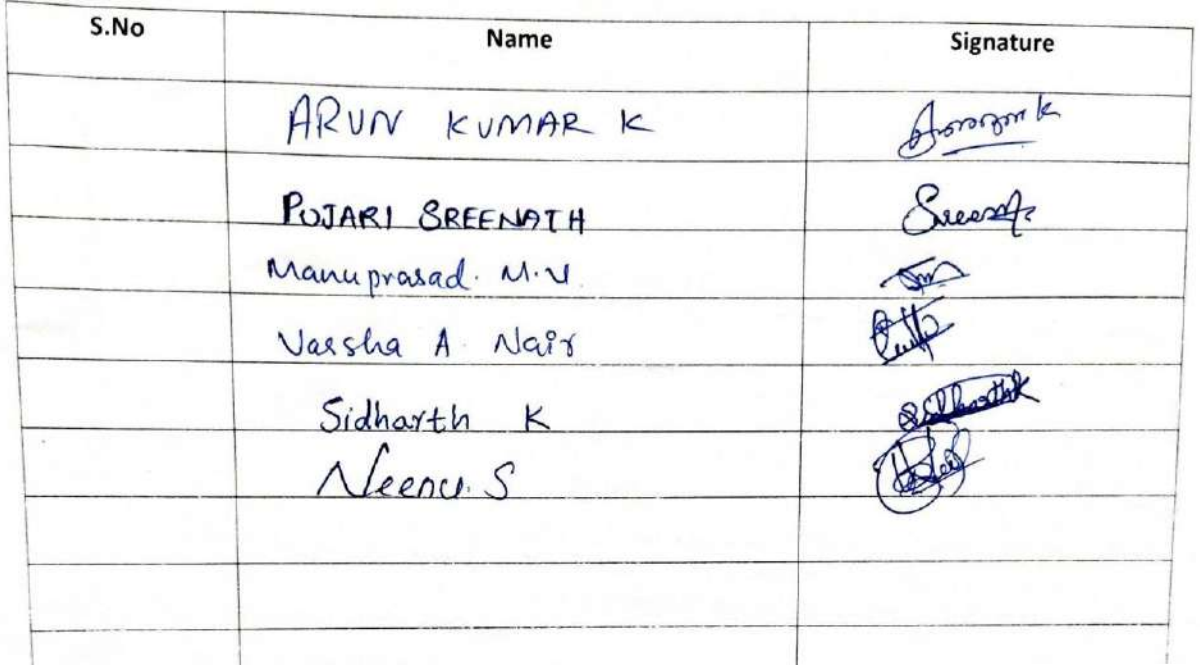 S.No Name Signature
ARUN KUMAR K
PUJARI SREENATH
Manuprasad. M.V.
Varsha A Nair
Sidharth K Sidharth K
Neenu. S